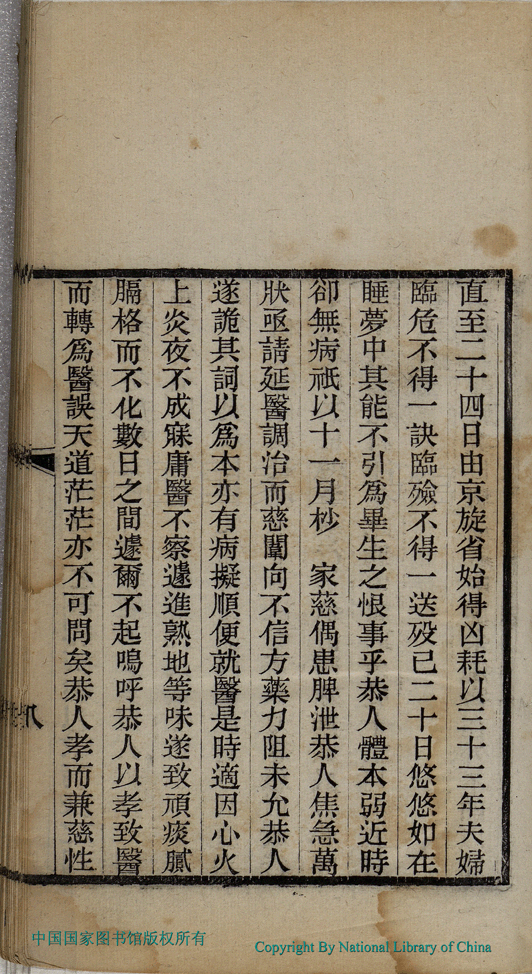 直至二十四日由京旋省始得凶耗以三十三年夫婦
臨危不得一訣臨殮不得一送歿已二十日悠悠如在
睡夢中其能不引爲畢生之恨事乎恭人體本弱近時
卻無病祇以十一月杪　家慈偶患脾泄恭人焦急萬
狀亟請延醫調治而慈闈向不信方藥力阻未允恭人
遂詭其詞以爲本亦有病擬順便就醫是時適因心火
上炎夜不成寐庸醫不察遽進熟地等味遂致頑痰膩
膈格而不化數日之間遽爾不起嗚呼恭人以孝致醫
而轉爲醫誤天道茫茫亦不可問矣恭人孝而兼慈性
中国国家图书馆版权所有
Copyright By National Library of China